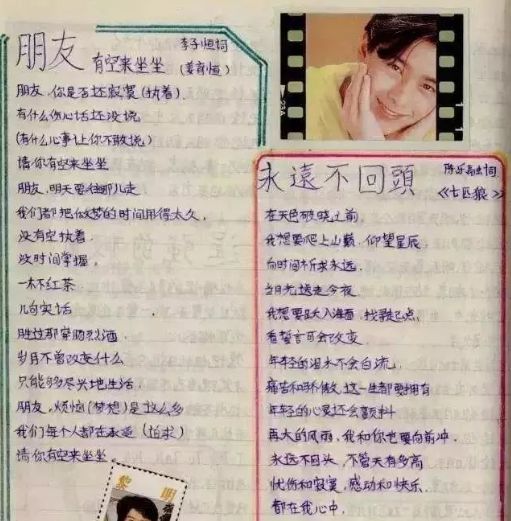 朋友
李子恒词
有空来坐坐
(姜育恒)
朋友,你是否还寂寞(执着)
有什么伤心话还没说
(有什么心事让你不敢说)
请你有空来坐坐
朋友,明天要往哪儿走
我们都把做梦的时间用得太久,
没有空执着,
没时间掌握,
一杯红茶
几句实话
胜过那穿肠烈酒,
岁月不曾改变什么
只能够尽兴地生活
朋友,烦恼(梦想)是这么多
我们每个人都在承受(追求)
请你有空来坐坐。
黎明
永遠不回頭
陈乐融词
《七匹狼》
在天色破晓之前,
我想要爬上山巅,仰望星辰
向时间祈求永远,
当月光送走今夜
我想要跃入海面,找寻起点,
看誓言可会改变
年轻的泪水不会白流,
痛苦和骄傲,这一生都要拥有
年轻的心灵还会颤抖
再大的风雨,我和你也要向前冲,
永远不回头,不管天有多高
忧伤和寂寞,感动和快乐,
都在我心中,